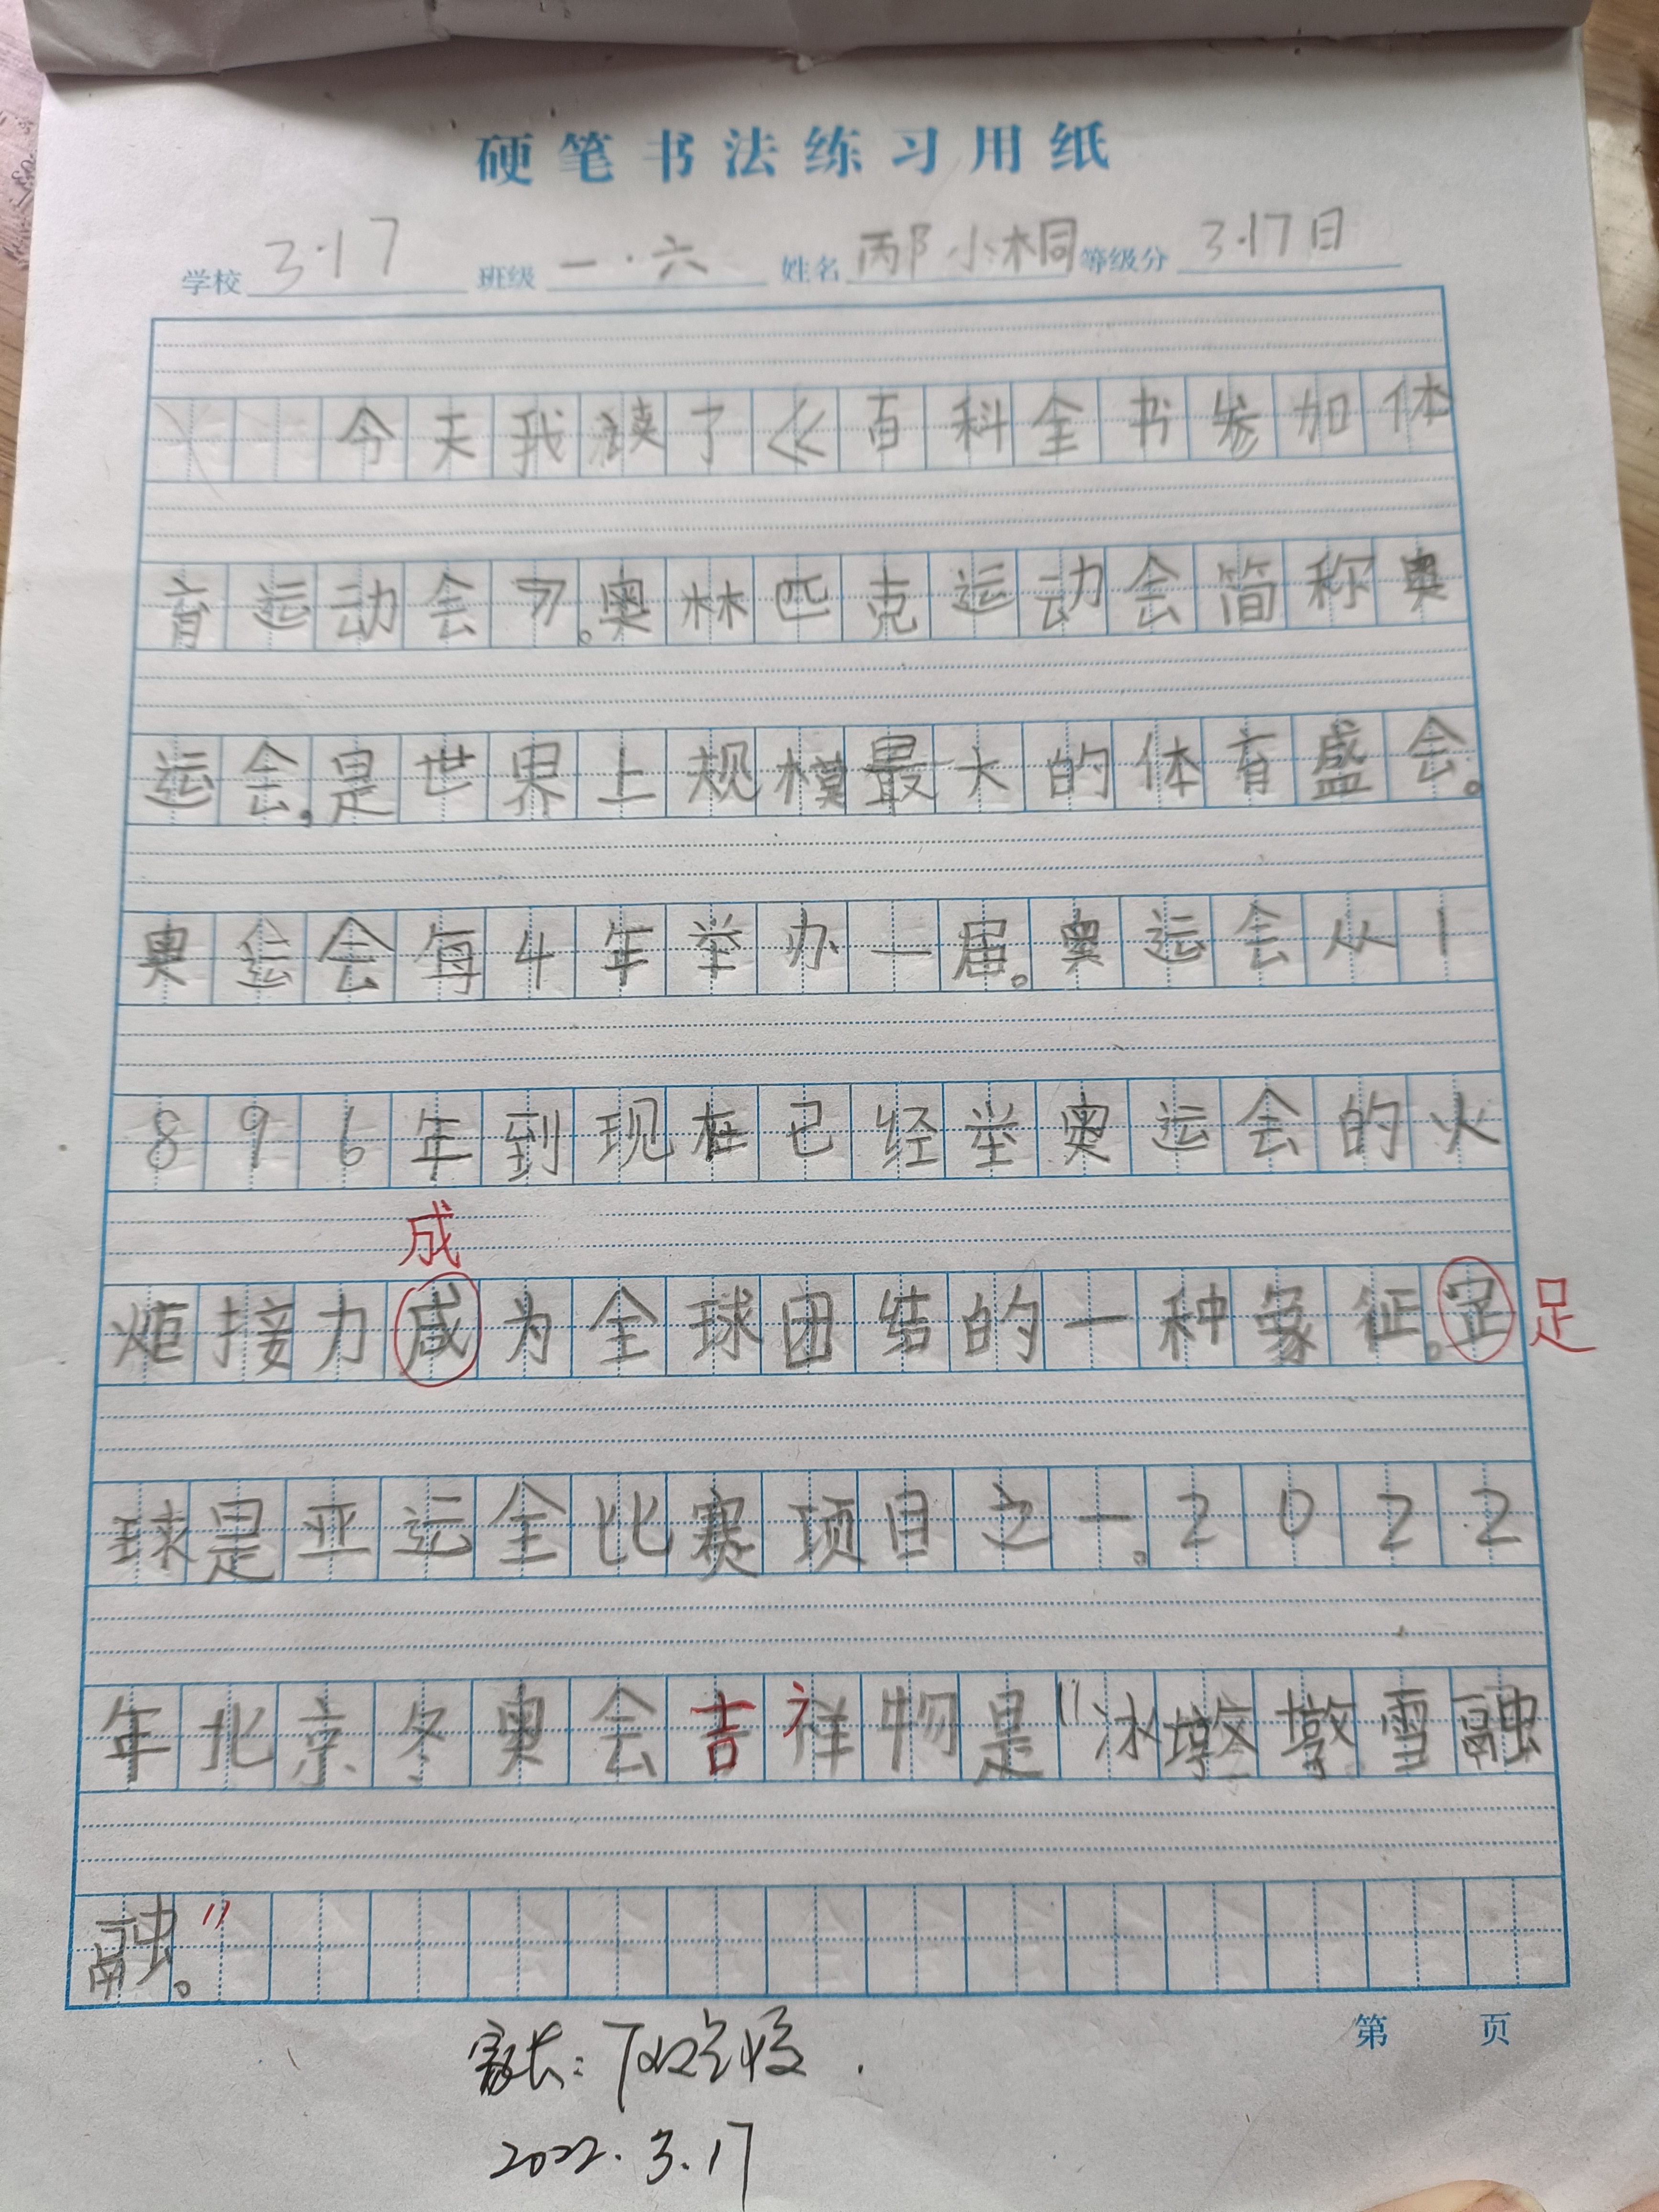 硬笔书法练习用纸
学校 3·17 班级 一·六 姓名 邴小桐 等级分 3·17日
今天我读了《百科全书参加体
育运动会》。奥林匹克运动会简称奥
运会,是世界上规模最大的体育盛会。
奥运会每4年举办一届。奥运会从1
896年到现在已经举奥运会的火
成
炬接力成为全球团结的一种象征。足 足
球是亚运全比赛项目之一。2022
年北京冬奥会吉祥物是“冰墩墩雪融
融。”
家长:
2022.3.17
第 页